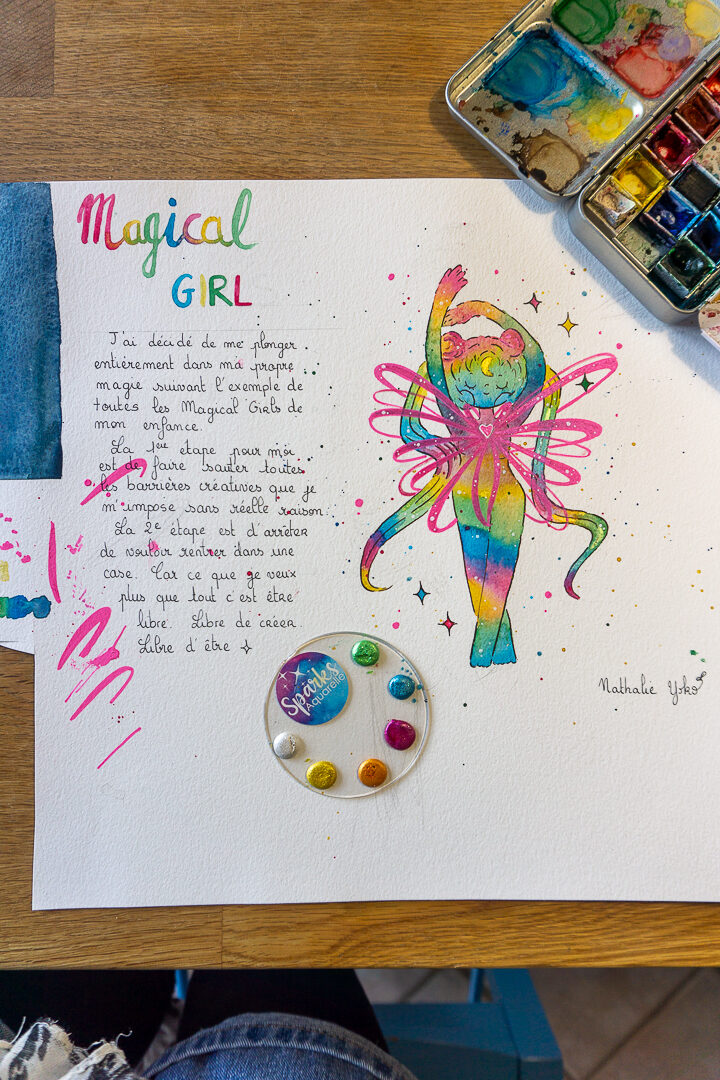 Magical
GIRL
J'ai décidé de me plonger
entièrement dans ma propre
magie suivant l'exemple de
toutes les Magical Girls de
mon enfance.
La 1ère étape pour moi
est de faire sauter toutes
les barrières créatives que je
m'impose sans réelle raison.
La 2e étape est d'arrêter
de vouloir rentrer dans une
case. Car ce que je veux
plus que tout c'est être
libre. Libre de créer.
Libre d'être
Sparks
Aquarelle
Nathalie Yoko